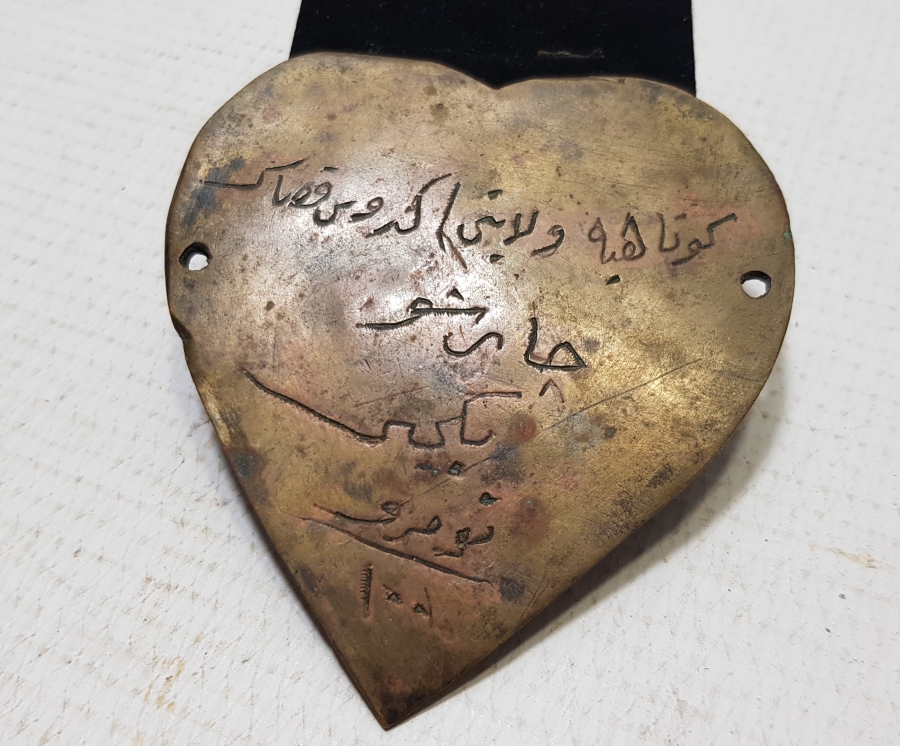 كوتاهیه ولایتی كدوس قضاسی
چارشو
بكچی
نومرو
١٠٠١